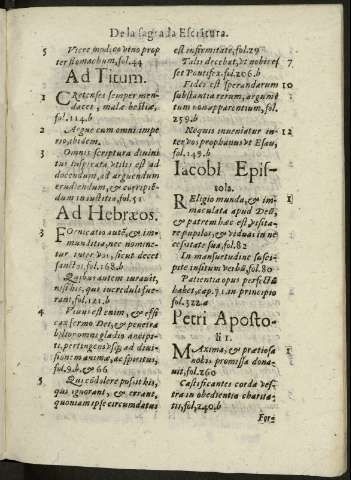 De la sagrada Escritura.
5 Vtere modico vino prop
ter stomachum, fol. 44
Ad Titum.
1 CRetenses semper men
daces, malæ bestiæ,
fol. 114. b
2 Argue cum omni impe
rio, ibidem.
3 Omnis scriptura diuini
tus inspirata vtilis est ad
docendum, ad arguendum
erudiendum, & corripiẽ-
dum in iustitia, fol. 51
Ad Hebræos.
3 FOrnicatio autẽ, & im-
munditia, nec nomine
tur inter vos, sicut decet
sanctos, fol. 168. b
Quibus autem iurauit,
nisi his, qui increduli fue
rant, fol. 121. b
4 Viuus est enim, & effi
cax sermo Dei, & penetra
bilior omni gladio ancipi-
ti, pertingens vsq; ad diui-
sionẽ animæ, ac spiritus,
fol. 9. b, & 66
5 Qui cõdolere possit his,
qui ignorant, & errant,
quoniam ipse circumdatus
est infirmitate, fol. 29
Talis decebat, vt nobis es
set Pontifex. fol. 206. b 7
Fides est sperandarum 10
substantia rerum, argumẽ
tum non apparentium, fol.
259. b
Nequis inueniatur in- 12
ter vos prophanus vt Esau,
fol. 149. b
Iacobi Epis-
tola.
REligio munda, & im- 1
maculata apud Deũ,
& patrem hæc est, visita-
re pupilos, & viduas in ne
cesitate sua. fol. 82
In mansuetudine susci-
pite insitum verbũ, fol. 80
Patientia opus perfectũ
habet, cap. 31. in principio
fol. 322. a
Petri Aposto-
li.
MAxima, & prætiosa 1
nobis promissa dona-
uit, fol. 260
Castificantes corda ves-
tra in obedientia charita-
tis, fol. 240. b
For-